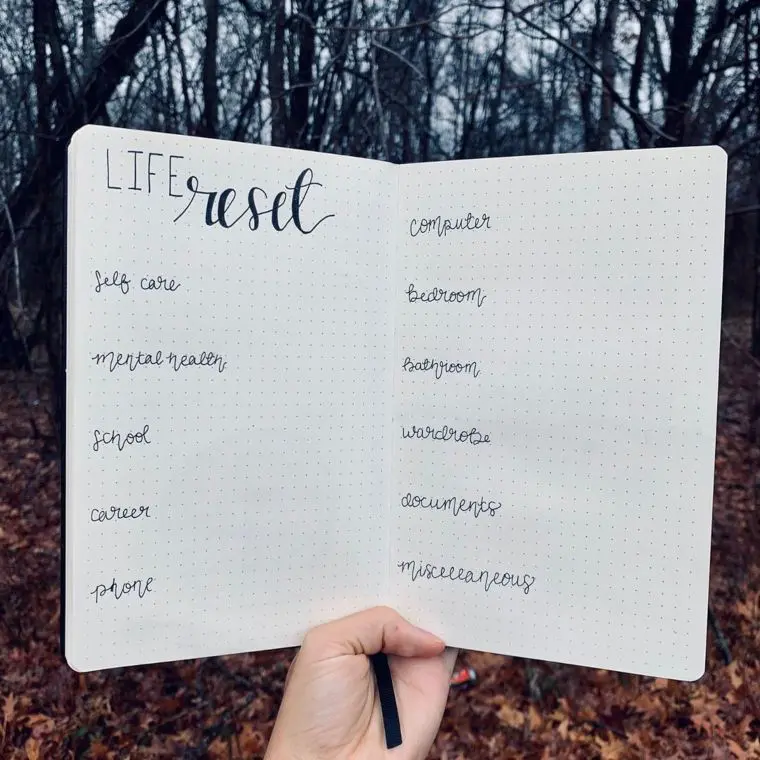 LIFE reset
self care
mental health
school
career
phone
computer
bedroom
bathroom
wardrobe
documents
miscellaneous